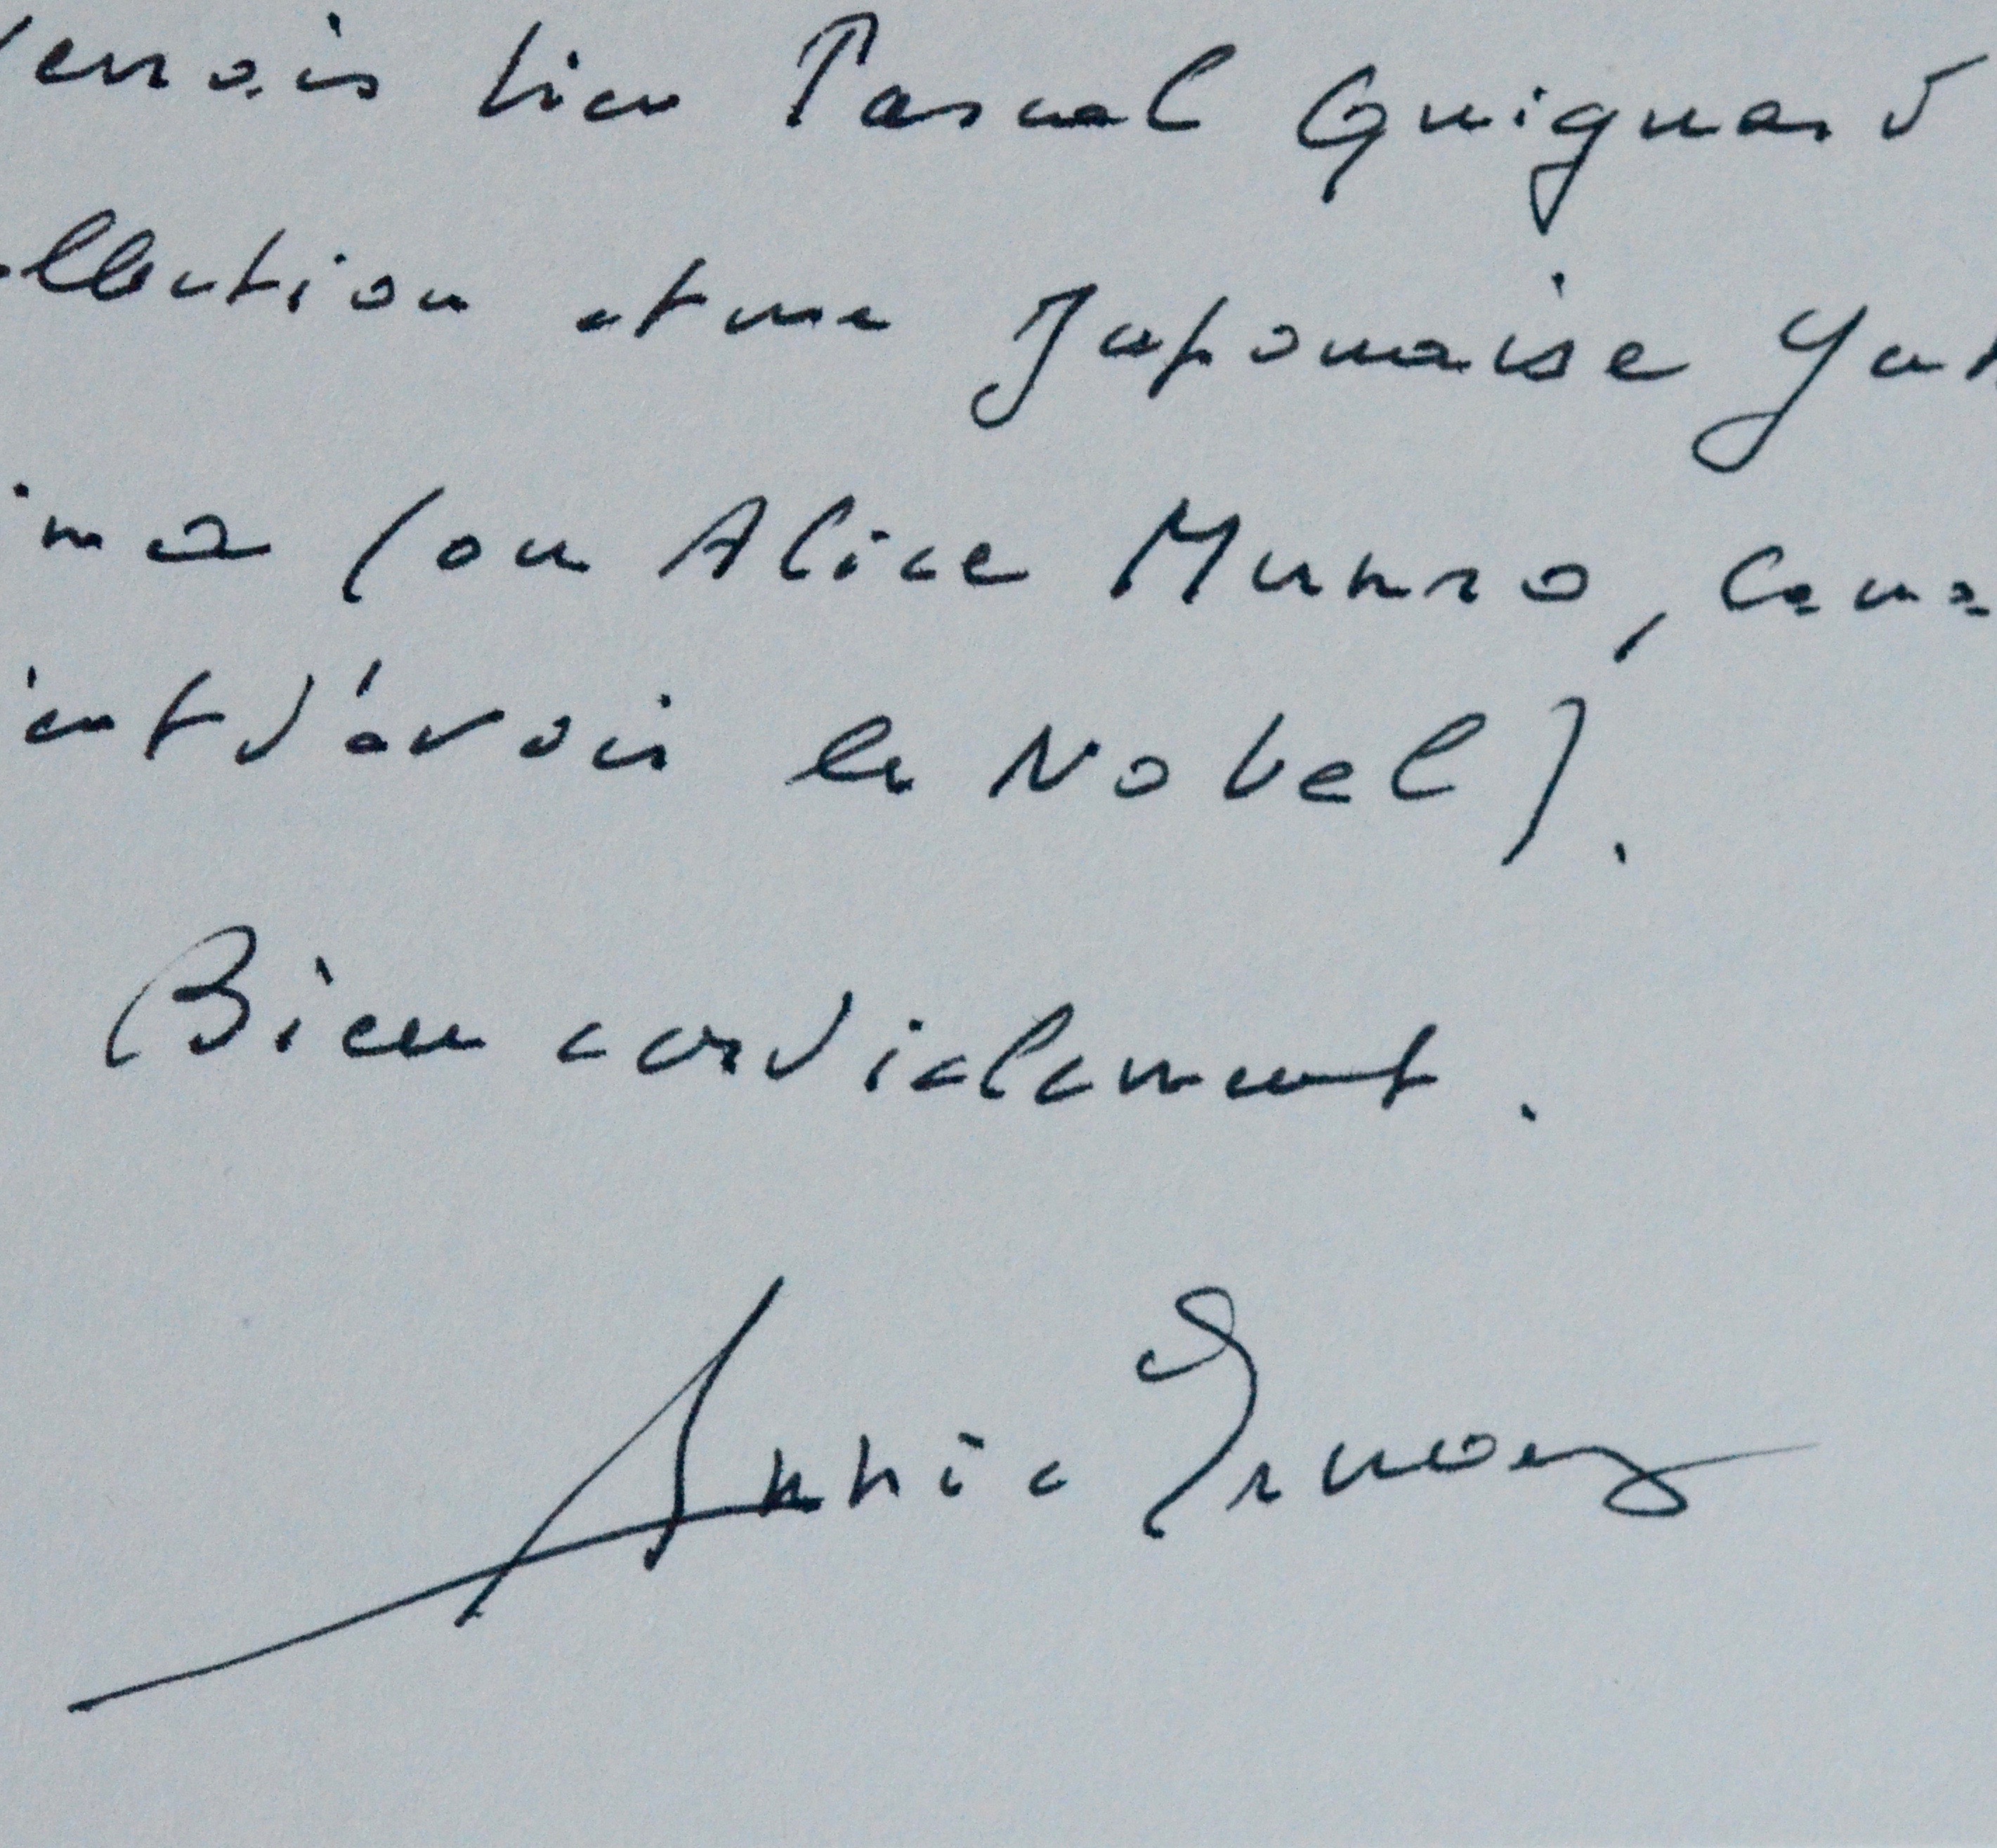 verrais bien Pascal Quignard
ollection et une Japonaise Yuk
ima (ou Alice Munro, Cana
ient d'avoir le Nobel).
Bien cordialement.
Annie Ernaux